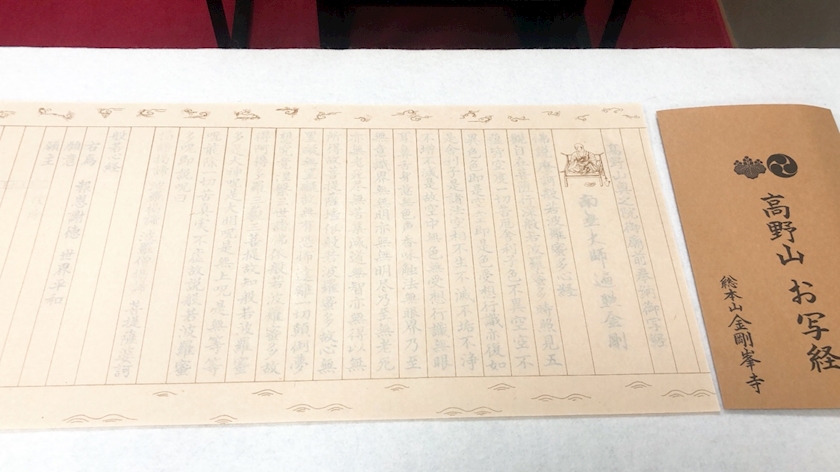 高野山 お写経
総本山金剛峯寺
高野山奥之院御廟前奉納御写経
南無大師遍照金剛
般若波羅蜜多心経
観自在菩薩行深般若波羅蜜多時照見五
蘊皆空度一切苦厄舎利子色不異空空不
異色色即是空空即是色受想行識亦復如
是舎利子是諸法空相不生不滅不垢不浄
不増不減是故空中無色無受想行識無眼
耳鼻舌身意無色声香味触法無眼界乃至
無意識界無無明亦無無明尽乃至無老死
尽無苦集滅道無智亦無得以無
薩埵依般若波羅蜜多故心無
罣礙無罣礙故無有恐怖遠離一切顛倒夢
想究竟涅槃三世諸仏依般若波羅蜜多故
得阿耨多羅三藐三菩提故知般若波羅蜜
多是大神呪是大明呪是無上呪是無等等
呪能除一切苦真実不虚故説般若波羅蜜
多呪即説呪曰
羯諦羯諦 波羅羯諦 波羅僧羯諦 菩提薩婆訶
般若心経
右為 報恩謝徳 世界平和
願意
願主